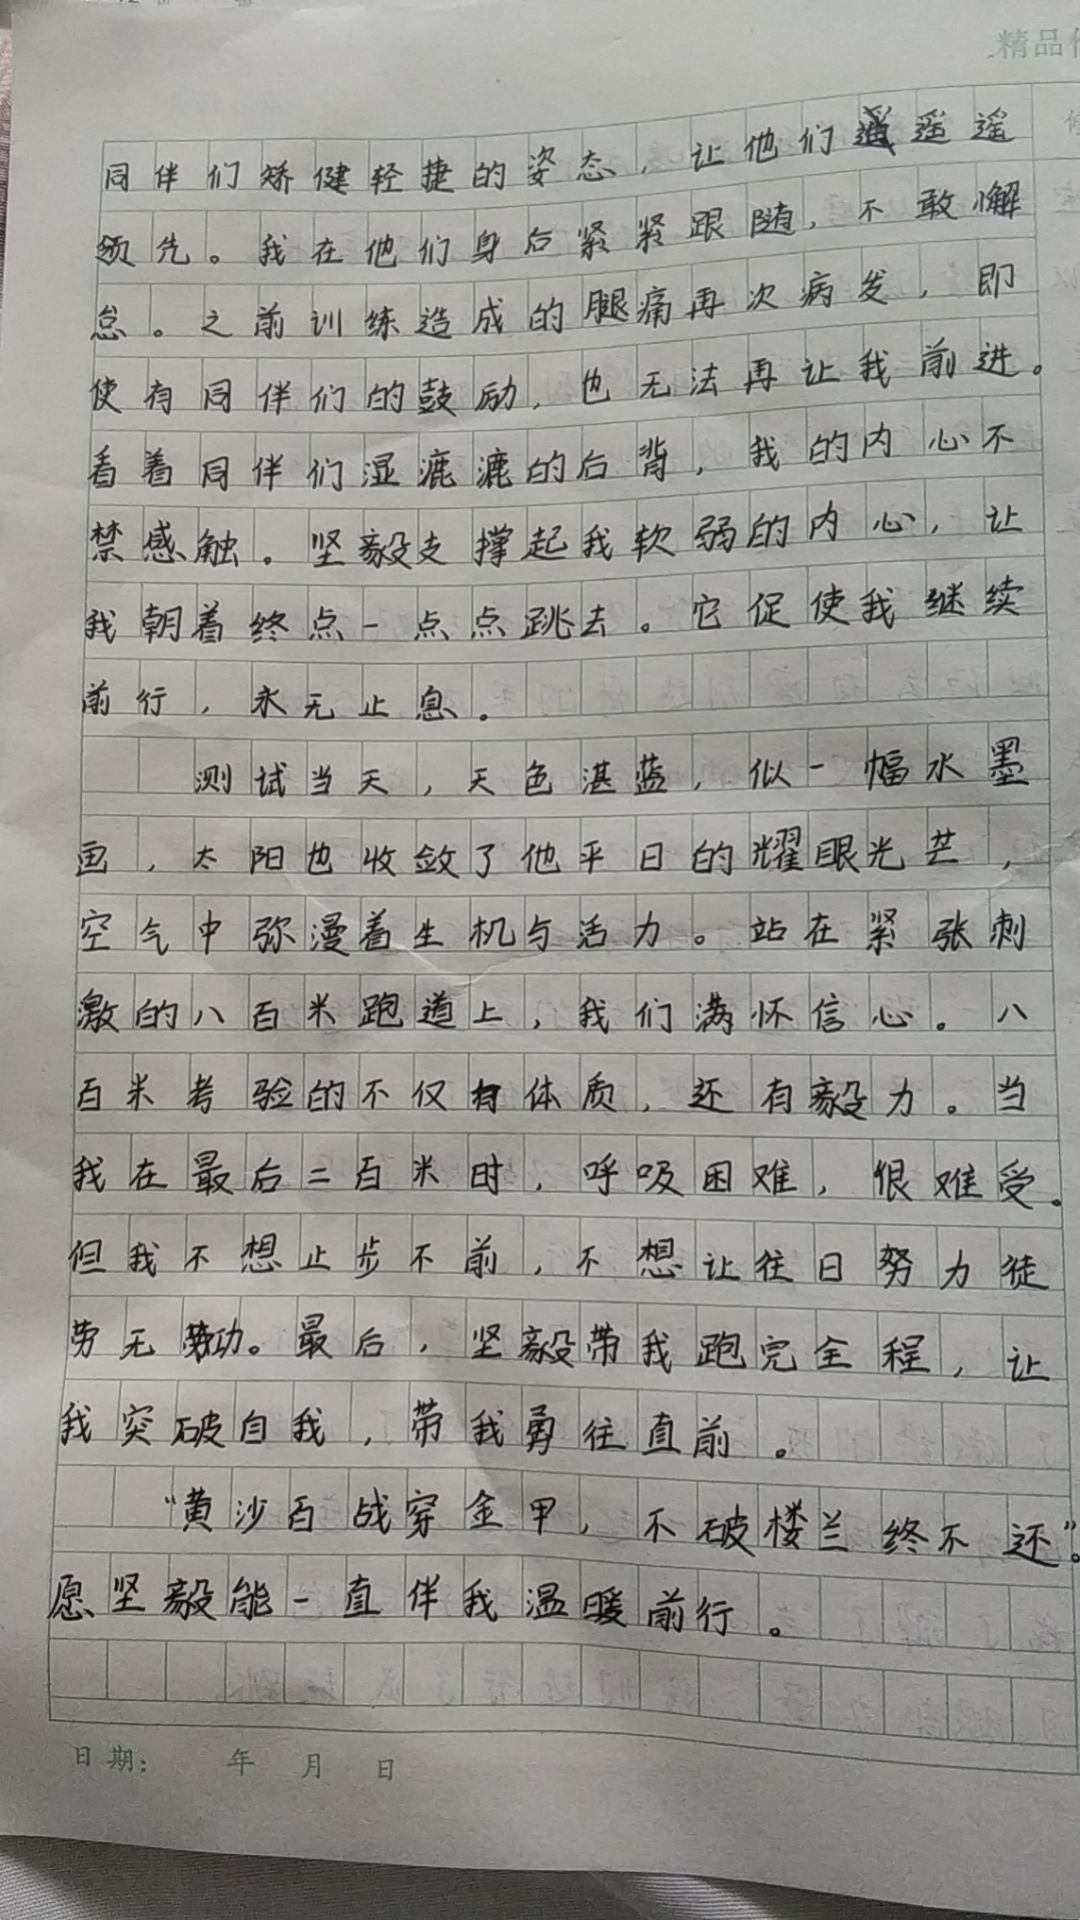 精品
同伴们矫健轻捷的姿态，让他们遥遥
领先。我在他们身后紧紧跟随，不敢懈
怠。之前训练造成的腿痛再次病发，即
使有同伴们的鼓励，也无法再让我前进。
看着同伴们湿漉漉的后背，我的内心不
禁感触。坚毅支撑起我软弱的内心，让
我朝着终点一点点跳去。它促使我继续
前行，永无止息。
测试当天，天色湛蓝，似一幅水墨
画，太阳也收敛了他平日的耀眼光芒，
空气中弥漫着生机与活力。站在紧张刺
激的八百米跑道上，我们满怀信心。八
百米考验的不仅有体质，还有毅力。当
我在最后二百米时，呼吸困难，很难受。
但我不想止步不前，不想让往日努力徒
劳无功。最后，坚毅带我跑完全程，让
我突破自我，带我勇往直前。
“黄沙百战穿金甲，不破楼兰终不还”。
愿坚毅能一直伴我温暖前行。
日期： 年 月 日